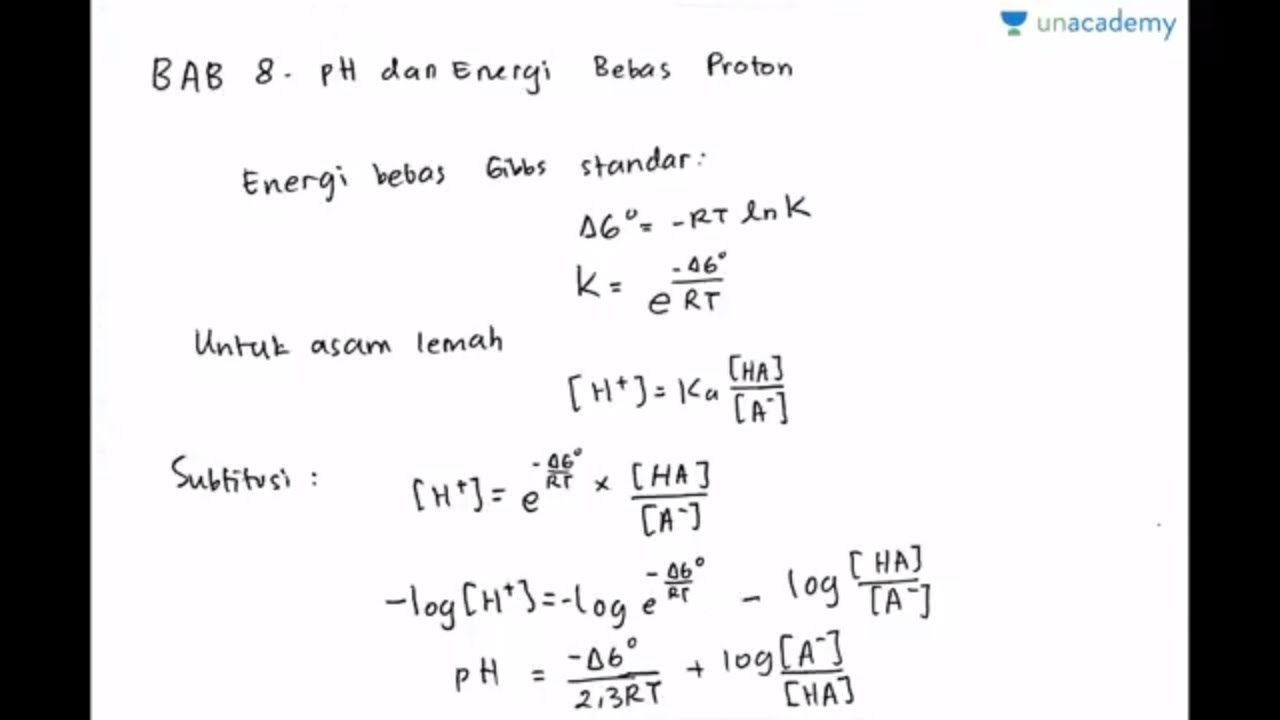 unacademy
BAB 8. pH dan Energi Bebas Proton
Energi bebas Gibbs standar:
ΔG° = -RT ln K
K = e^(-ΔG°/RT)
Untuk asam lemah
[H⁺] = Ka [HA]/[A⁻]
Subtitusi :
[H⁺] = e^(-ΔG°/RT) × [HA]/[A⁻]
-log[H⁺] = -log e^(-ΔG°/RT) - log [HA]/[A⁻]
pH = -ΔG°/2,3RT + log [A⁻]/[HA]